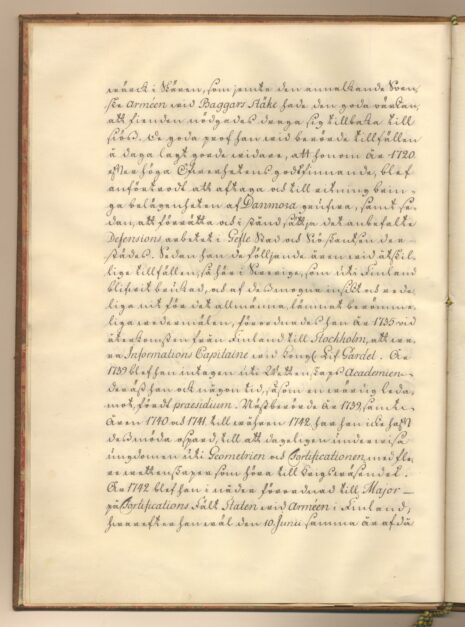 wärck i Skären, som jemte den annalkande Sven-
ske Arméen wid Baggars Stäke hade den goda wärkan,
att fienden nödgades draga sig tillbaka till
siös. De goda prof han wid berörde tillfällen
å daga lagt gorde widare, att honom År 1720.
efter höga Öfwerhetens godtfinnande, blef
anförtrodt att aftaga och till ritning brin-
ga belägenheten af Danmora grufwa, samt se-
dan, att förrätta och i stånd sättja det anbefalte
Defensions arbetet i Gefle Stad och Siöskantsen der-
städes. Sedan han de följjande åren wid åtskil-
lige tillfällen, så här i Swerige, som uti Finland
blifwit brukad, och af des mogna insikt och rede-
liga nit för det allmänna, lämnat berömme-
liga wedermälen, förordnades han År 1735 wid
återkomsten från Finland till Stockholm, att wa-
ra Informations Capitaine wid Kongl. Lif Gardet. År
1739 blef han intagen uti Wettenskaps Academien
deräst han ock någon tid, såsom en wärdig leda-
mot, fördt præsidium. Nästberörde År 1739, samt
Åren 1740 och 1741, till wåhren 1742, har han icke haft
des möda ospard, till att dageligen underwisa
ungdomen uti Geometrien och Fortificationen med fle-
re wettenskaper som höra till krigswäsendet.
År 1742 blef han i nåder förordnad till Major
på Fortifications Fält Staten wid Arméen i Finland,
hwarefter han wäl den 10. Junii samma år afdä